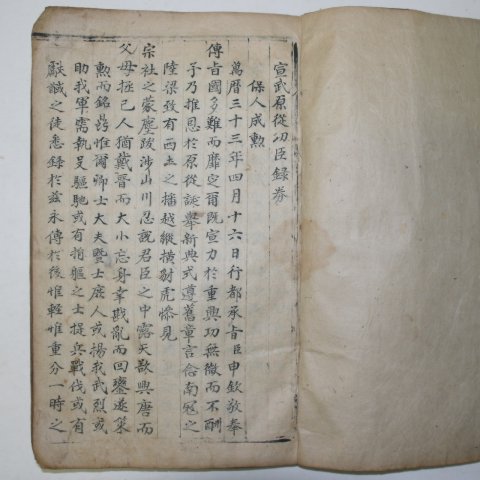 宣武原從功臣錄券
保人成勲
萬曆三十三年四月十六日行都承旨臣申欽敬奉
傳旨國多難而靡定爾既宣力於重興功無微而不酬
予乃推恩於原從誕舉新典式遵舊章言念南冦之
陸梁致有西土之播越縱橫豺虎慘見
宗社之蒙塵跋涉山川忍說君臣之中露天歆興唐而
父母拯己人猶戴晋而大小忘身幸戡亂而回鑾遂策
勲而銘鼎惟爾卿士大夫曁士庶人或揚我武烈或
助我軍需執殳驅馳或有捐軀之士提兵戰伐或有
獻誠之徒悉錄於玆永傳於後惟輕惟重分一時之